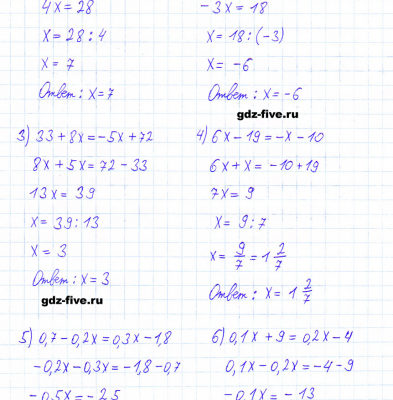 4x = 28
x = 28 : 4
x = 7
Ответ: x = 7
-3x = 18
x = 18 : (-3)
x = -6
Ответ: x = -6
gdz-five.ru
3) 33 + 8x = -5x + 72
8x + 5x = 72 - 33
13x = 39
x = 39 : 13
x = 3
Ответ: x = 3
gdz-five.ru
4) 6x - 19 = -x - 10
6x + x = -10 + 19
7x = 9
x = 9 : 7
x = 9/7 = 1 2/7
Ответ: x = 1 2/7
5) 0,7 - 0,2x = 0,3x - 1,8
-0,2x - 0,3x = -1,8 - 0,7
-0,5x = -2,5
6) 0,1x + 9 = 0,2x - 4
0,1x - 0,2x = -4 - 9
-0,1x = -13